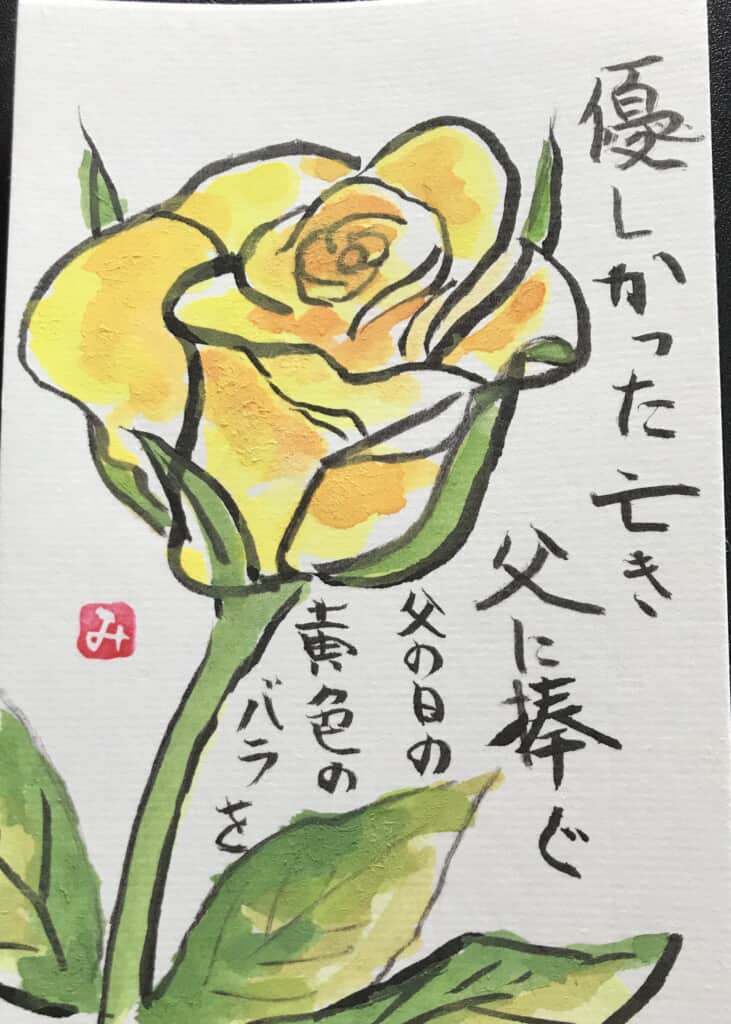 優しかった亡き
父に捧ぐ
父の日の
黄色の
バラを
み